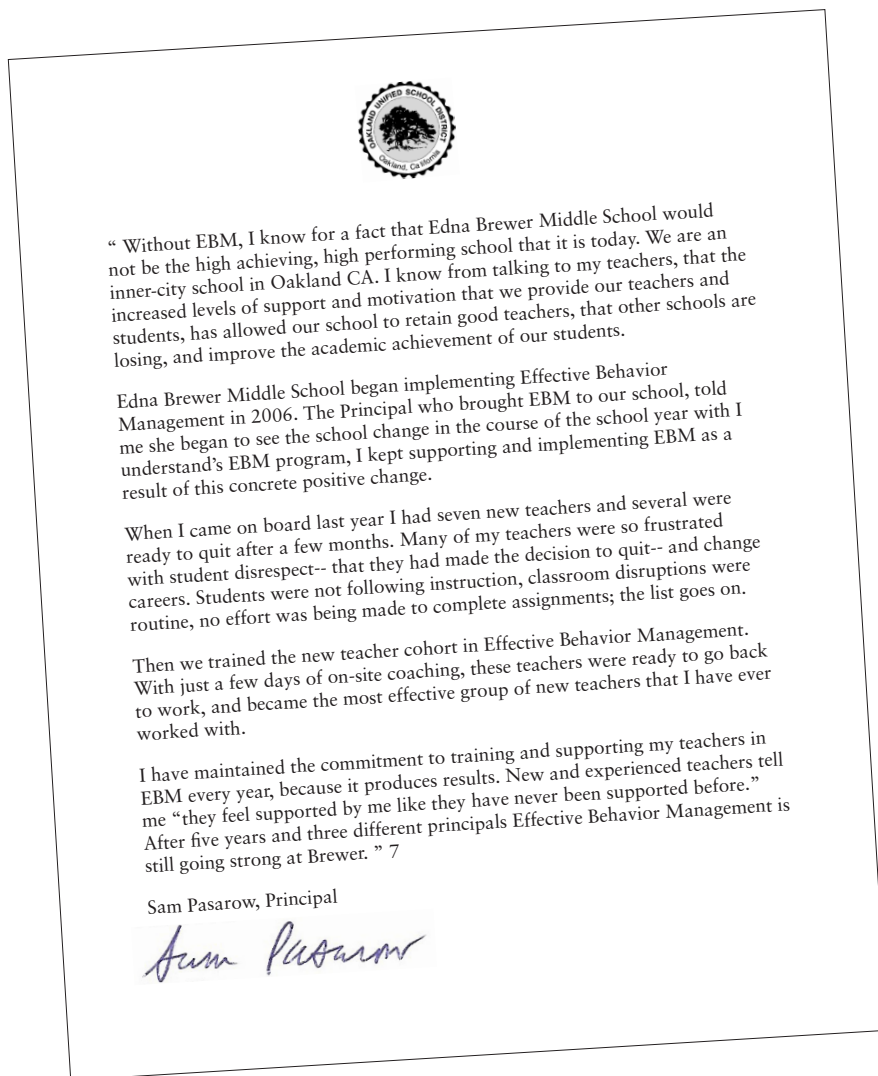 OAKLAND UNIFIED SCHOOL DISTRICT
Oakland, California
“ Without EBM, I know for a fact that Edna Brewer Middle School would
not be the high achieving, high performing school that it is today. We are an
inner-city school in Oakland CA. I know from talking to my teachers, that the
increased levels of support and motivation that we provide our teachers and
students, has allowed our school to retain good teachers, that other schools are
losing, and improve the academic achievement of our students.
Edna Brewer Middle School began implementing Effective Behavior
Management in 2006. The Principal who brought EBM to our school, told
me she began to see the school change in the course of the school year with I
understand’s EBM program, I kept supporting and implementing EBM as a
result of this concrete positive change.
When I came on board last year I had seven new teachers and several were
ready to quit after a few months. Many of my teachers were so frustrated
with student disrespect-- that they had made the decision to quit-- and change
careers. Students were not following instruction, classroom disruptions were
routine, no effort was being made to complete assignments; the list goes on.
Then we trained the new teacher cohort in Effective Behavior Management.
With just a few days of on-site coaching, these teachers were ready to go back
to work, and became the most effective group of new teachers that I have ever
worked with.
I have maintained the commitment to training and supporting my teachers in
EBM every year, because it produces results. New and experienced teachers tell
me “they feel supported by me like they have never been supported before.”
After five years and three different principals Effective Behavior Management is
still going strong at Brewer. ” 7
Sam Pasarow, Principal
Sam Pasarow